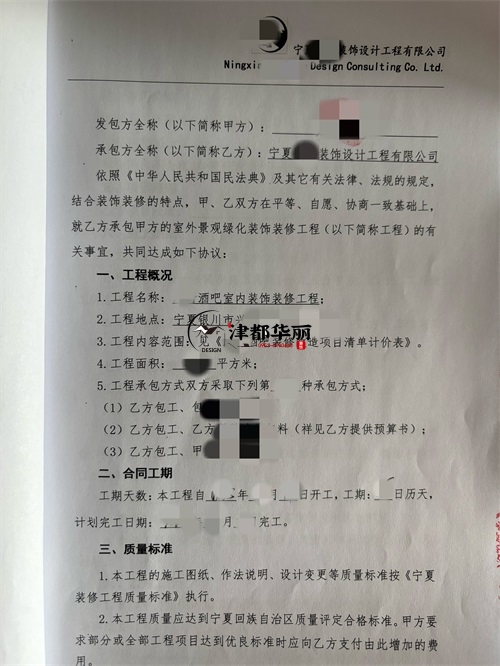 宁 装饰设计工程有限公司
Ningxi Design Consulting Co. Ltd.
发包方全称（以下简称甲方）：
承包方全称（以下简称乙方）：宁夏 装饰设计工程有限公司
依照《中华人民共和国民法典》及其它有关法律、法规的规定，
结合装饰装修的特点，甲、乙双方在平等、自愿、协商一致基础上，
就乙方承包甲方的室外景观绿化装饰装修工程（以下简称工程）的有
关事宜，共同达成如下协议：
一、工程概况
1.工程名称： 酒吧室内装饰装修工程；
2.工程地点：宁夏银川市兴
津都华丽
DESIGN
3.工程内容范围：见《 装修 造项目清单计价表》。
4.工程面积： 平方米；
5.工程承包方式双方采取下列第 种承包方式；
（1）乙方包工、包
（2）乙方包工、乙方 料（祥见乙方提供预算书）；
（3）乙方包工、甲
二、合同工期
工期天数：本工程自 年 月 日开工，工期： 日历天，
计划完工日期： 月 完工。
三、质量标准
1.本工程的施工图纸、作法说明、设计变更等质量标准按《宁夏
装修工程质量标准》执行。
2.本工程质量应达到宁夏回族自治区质量评定合格标准。甲方要
求部分或全部工程项目达到优良标准时应向乙方支付由此增加的费
用。